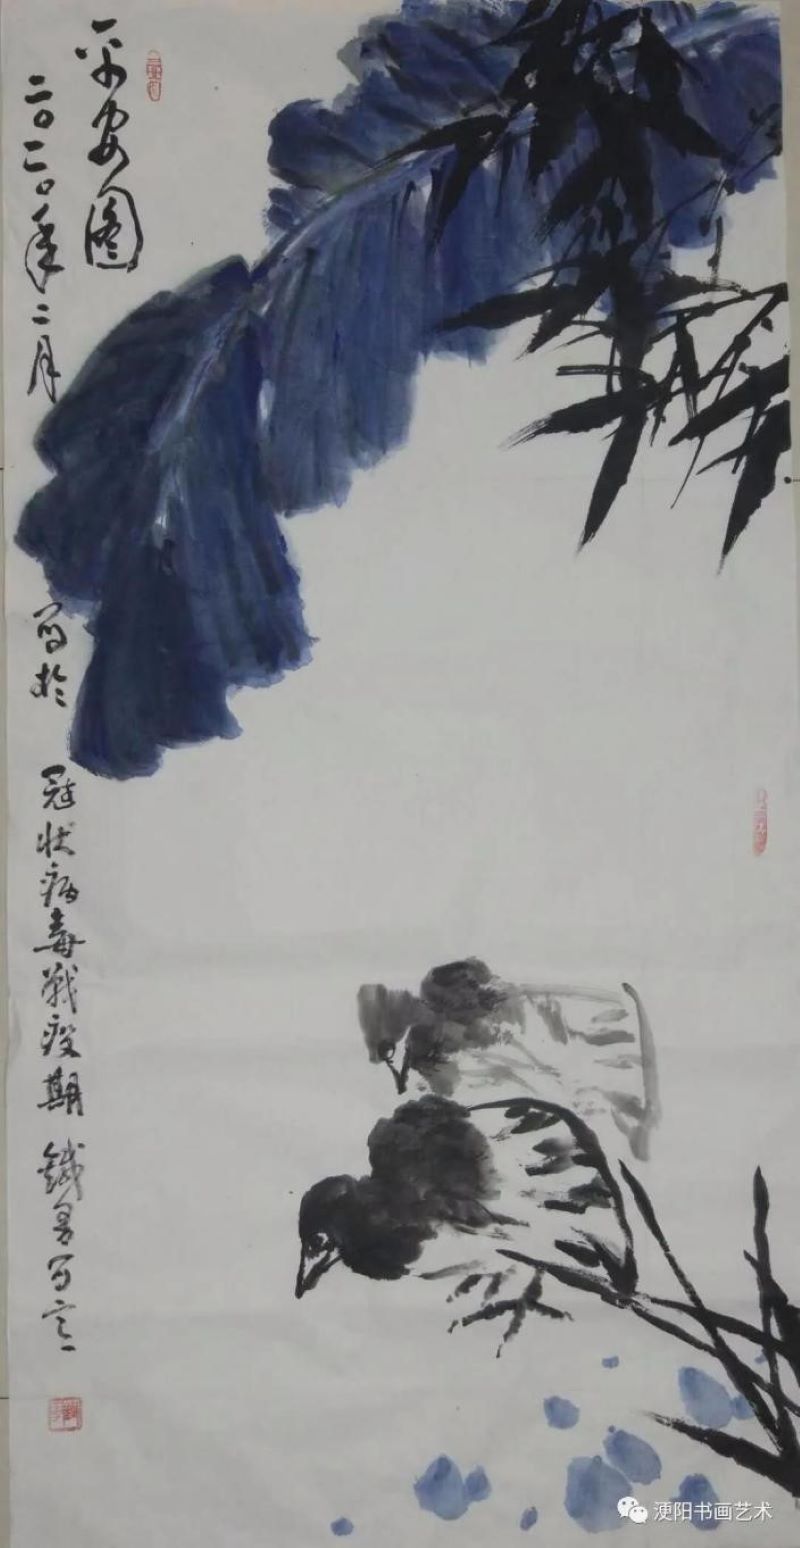 平安图
二〇二〇年二月
写於
冠状病毒战疫期
汾阳书画艺术